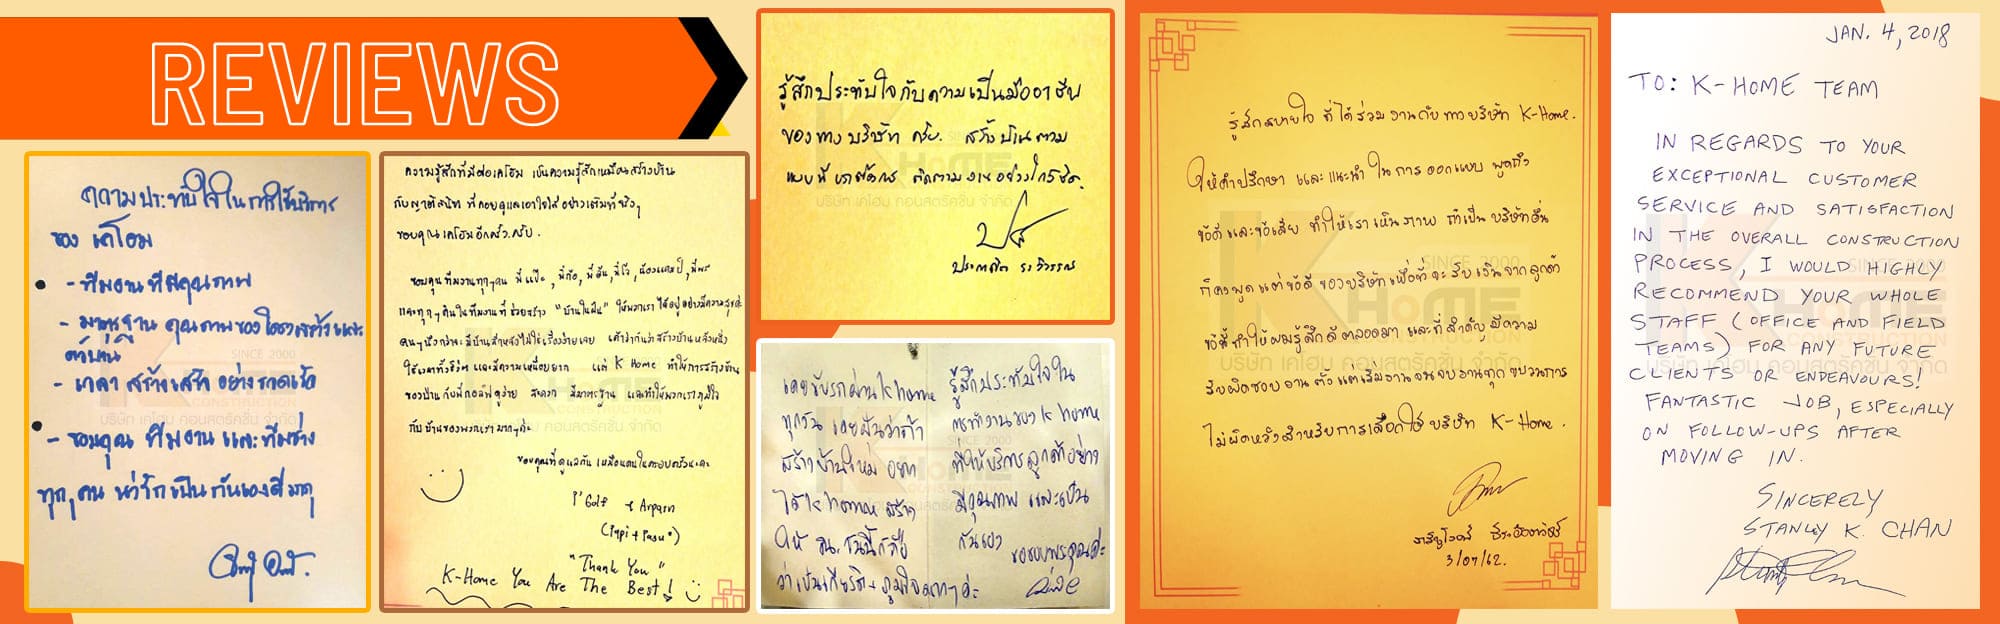 REVIEWS
ความประทับใจในการใช้บริการ
ของ เคโฮม
- ทีมงานที่มีคุณภาพ
- มาตรฐาน คุณภาพของโครงสร้างและ
ตัวบ้าน
- เวลา สร้างเสร็จ อย่างรวดเร็ว
- ขอบคุณ ทีมงาน และทีมช่าง
ทุกๆ คน น่ารักเป็นกันเองดีมาก
ความรู้สึกที่มีต่อเคโฮม เป็นความรู้สึกเหมือนสร้างบ้าน
กับญาติสนิท ที่คอยดูแลเอาใจใส่ อย่างเต็มที่จริงๆ
ขอบคุณเคโฮมอีกครั้งครับ.
ขอบคุณทีมงานทุกๆคน
และทุกๆคนในทีมงานที่ ช่วยสร้าง "บ้านในฝัน" ให้พวกเรา ได้อยู่อย่างมีความสุขค่ะ
คนๆนึงกว่าจะมีบ้านสักหลังไม่ใช่เรื่องง่ายเลย
ใช้เวลาทั้งชีวิต และมีความเหนื่อยยาก แต่ K Home ทำให้การสร้างบ้าน
ของป่านกับพี่กอล์ฟดูง่าย สะดวก มีมาตรฐาน และทำให้พวกเราภูมิใจ
กับบ้านของพวกเรามากๆค่ะ
ขอบคุณที่ดูแลกัน เหมือนคนในครอบครัวนะคะ
"Thank You"
K-Home You Are The Best!
รู้สึกประทับใจกับความเป็นมืออาชีพ
ของทางบริษัท ครับ. สร้างบ้านตาม
แบบที่ ติดตามงานอย่างใกล้ชิด.
เคยขับรถผ่าน k home
ทุกวัน เคยฝันว่าถ้า
สร้างบ้านใหม่ อยาก
ได้ k home สร้าง
ให้
ว่าเป็นเกียรติ+ภูมิใจมากๆค่ะ
รู้สึกประทับใจใน
การทำงานของ k home
ที่ให้บริการลูกค้าอย่าง
มีคุณภาพ และเป็น
กันเอง ขอขอบพระคุณค่ะ
รู้สึกสบายใจ ที่ได้ร่วมงานกับทางบริษัท K-Home.
ให้คำปรึกษา และแนะนำ ในการออกแบบ พูดถึง
ข้อดีและข้อเสีย ทำให้เราเห็นภาพ ถ้าเป็นบริษัทอื่น
ก็คงพูดแต่ข้อดี ของบริษัทเพื่อที่จะรับเงินจากลูกค้า
ข้อนี้ทำให้ผมรู้สึกดีตลอดมา และที่สำคัญ มีความ
รับผิดชอบงาน ตั้งแต่เริ่มงานจนจบงานทุกขบวนการ
ไม่ผิดหวังสำหรับการเลือกใช้ บริษัท K-Home.
3/07/62.
JAN. 4, 2018
TO: K-HOME TEAM
IN REGARDS TO YOUR
EXCEPTIONAL CUSTOMER
SERVICE AND SATISFACTION
IN THE OVERALL CONSTRUCTION
PROCESS, I WOULD HIGHLY
RECOMMEND YOUR WHOLE
STAFF (OFFICE AND FIELD
TEAMS) FOR ANY FUTURE
CLIENTS OR ENDEAVOURS!
FANTASTIC JOB, ESPECIALLY
ON FOLLOW-UPS AFTER
MOVING IN.
SINCERELY
STANLEY K. CHAN
SINCE 2000
HOME
CONSTRUCTION
บริษัท เคโฮม คอนสตรัคชั่น จำกัด